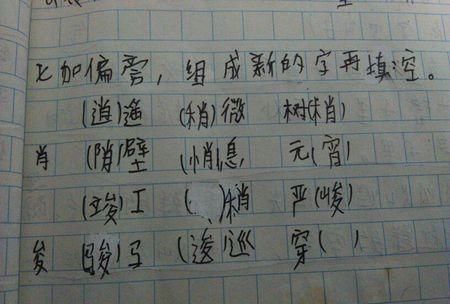 七加偏旁，组成新的字再填空。
(逍)遥 (稍)微 树(梢)
肖 (陗)壁 (悄)息 元(宵)
(竣)工 ( )梢 严(峻)
夋 (骏)马 (逡)巡 穿( )